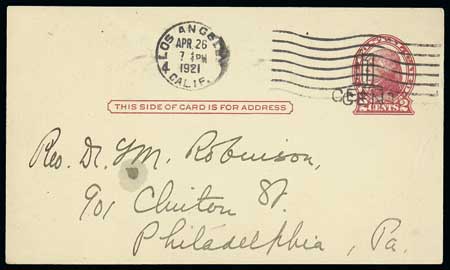 LOS ANGELES
APR 26
7 PM
1921
CALIF.
2 CENTS 2
THIS SIDE OF CARD IS FOR ADDRESS
Rev. Dr. Robinson,
901 Clinton St.
Philadelphia, Pa.